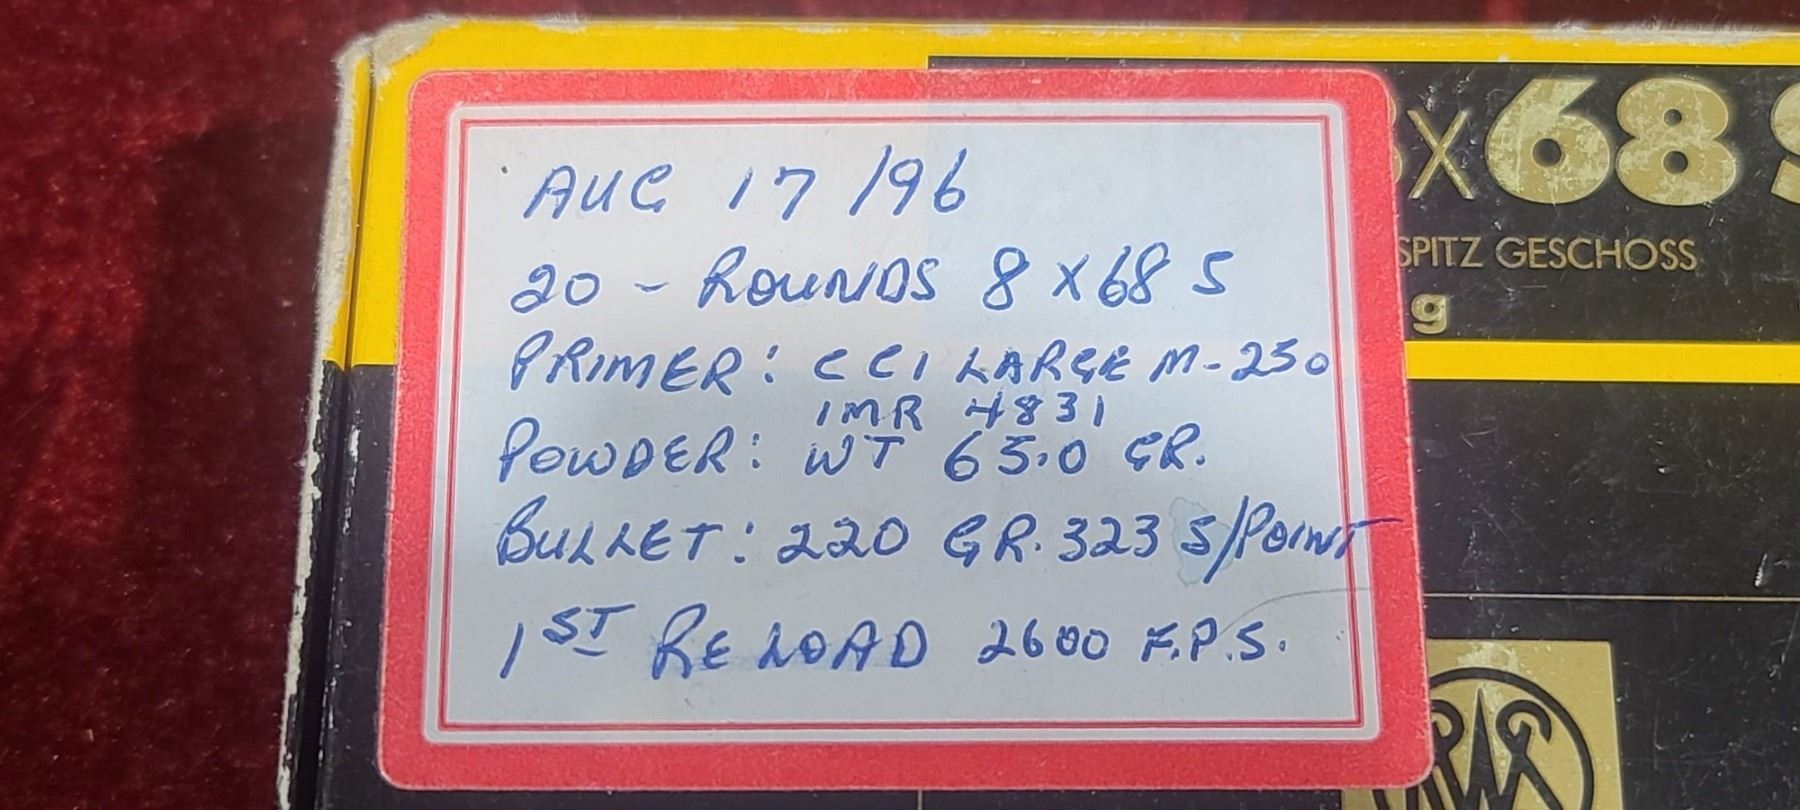 AUG 17/96
20 - ROUNDS 8 X 68 S
PRIMER: CCI LARGE M-250
IMR 4831
POWDER: WT 65.0 GR.
BULLET: 220 GR. 323 S/POINT
1ST RELOAD 2600 F.P.S.
8x68 S
SPITZ GESCHOSS
g
RWS